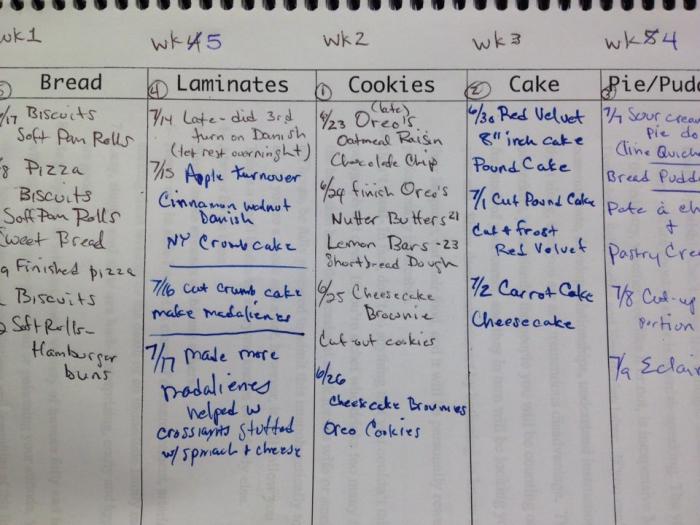 wk1
wk 5
wk2
wk3
wk 4
Bread
④ Laminates
① Cookies
② Cake
Pie/Pudd
/17 Biscuits
Soft Pan Rolls
/8 Pizza
Biscuits
Soft Pan Rolls
Sweet Bread
9 Finished pizza
Biscuits
Soft Rolls-
Hamburger
buns
7/14 Late- did 3rd
turn on Danish
(let rest overninght)
7/15 Apple turnover
Cinnamon walnut
Danish
NY Crumb cake
7/16 cut crumb cake
make madalienes
7/17 made more
madalienes
helped w
crossiants stuffed
w/ spinach & cheese
(late)
6/23 Oreo's
Oatmeal Raisin
Chocolate Chip
6/24 finish Oreo's
Nutter Butters 21
Lemon Bars -23
Shortbread Dough
6/25 Cheesecake
Brownie
Cut-out cookies
6/26
cheesecake Brownies
Oreo Cookies
6/30 Red Velvet
8" inch cake
Pound Cake
7/1 Cut Pound Cake
Cut & frost
Red Velvet
7/2 Carrot Cake
Cheesecake
7/7 Sour cream
pie do
Cline Quiche
Bread Pudd
Pate à ch
+
Pastry Cre
7/8 Cut-up
portion
7/9 Eclair